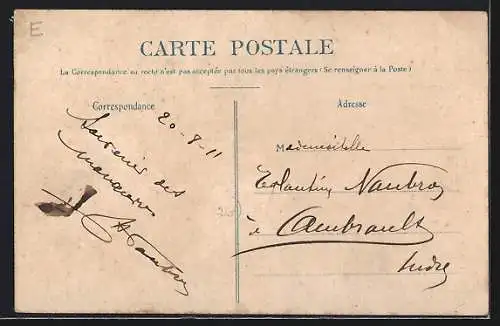 E
CARTE POSTALE
La Correspondance au recto n'est pas acceptée par tous les pays étrangers (Se renseigner à la Poste)
Correspondance
Adresse
20-9-11
Souvenir des
manœuvres
Mademoiselle
à Ambrault
Indre